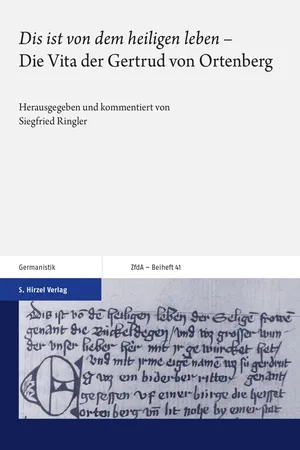 Dis ist von dem heiligen leben –
Die Vita der Gertrud von Ortenberg
Herausgegeben und kommentiert von
Siegfried Ringler
Germanistik
ZfdA – Beiheft 41
S. Hirzel Verlag
Dis ist vō dē heiligen leben der Selige frowē
genant die Rückeldegen / und wz grosser wun
der vnser lieber her mit ir gewürcket het /
und mit irme eigē namē wz sü gerdrut
E wz ein biderber ritter genant /
gesessen vf einer bürge die heisset
ortenberg vn̄ lit nohe by einer stat